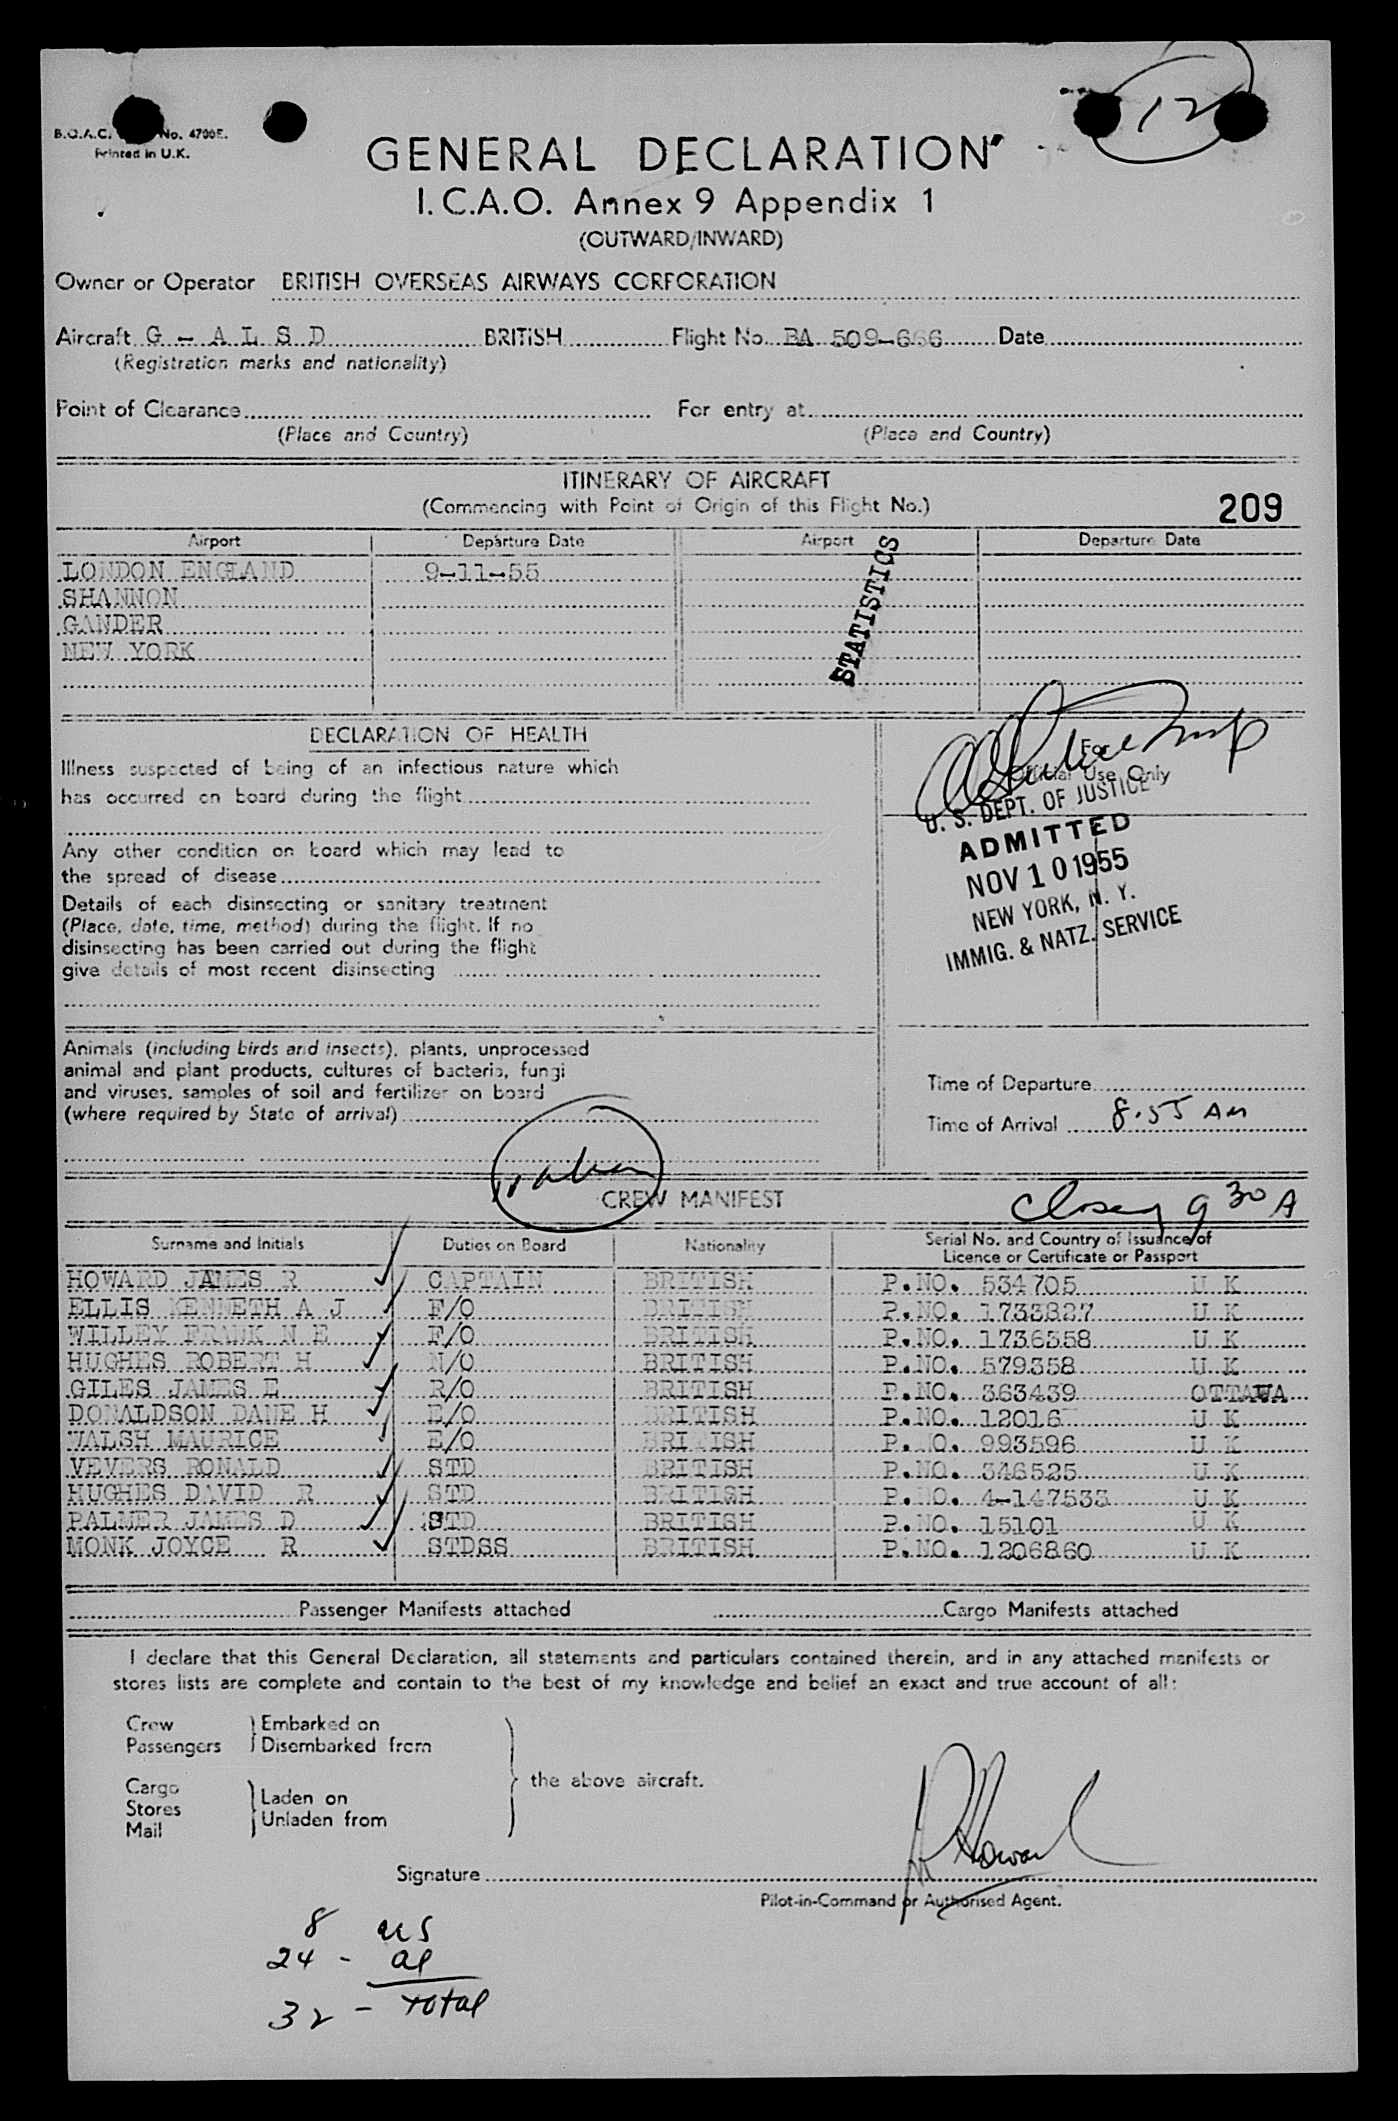 12
B.O.A.C. No. 4700E.
Printed in U.K.
GENERAL DECLARATION
I.C.A.O. Annex 9 Appendix 1
(OUTWARD/INWARD)
Owner or Operator BRITISH OVERSEAS AIRWAYS CORPORATION
Aircraft G - A L S D BRITISH Flight No. BA 509-666 Date
(Registration marks and nationality)
Point of Clearance For entry at
(Place and Country) (Place and Country)
ITINERARY OF AIRCRAFT
(Commencing with Point of Origin of this Flight No.) 209
Airport Departure Date Airport Departure Date
LONDON ENGLAND 9-11-55
SHANNON
GANDER
NEW YORK
STATISTICS
DECLARATION OF HEALTH
For
Official Use Only
Illness suspected of being of an infectious nature which
has occurred on board during the flight
Any other condition on board which may lead to
the spread of disease
Details of each disinsecting or sanitary treatment
(Place, date, time, method) during the flight. If no
disinsecting has been carried out during the flight
give details of most recent disinsecting
U. S. DEPT. OF JUSTICE
ADMITTED
NOV 10 1955
NEW YORK, N. Y.
IMMIG. & NATZ. SERVICE
Animals (including birds and insects), plants, unprocessed
animal and plant products, cultures of bacteria, fungi
and viruses, samples of soil and fertilizer on board
(where required by State of arrival)
Time of Departure
Time of Arrival 8.55 AM
CREW MANIFEST
Closed 9 30 A
Surname and Initials Duties on Board Nationality Serial No. and Country of Issuance of
Licence or Certificate or Passport
HOWARD JAMES R CAPTAIN BRITISH P.NO. 534705 U K
ELLIS KENNETH A J F/O BRITISH P.NO. 1733827 U K
WILLEY FRANK N E F/O BRITISH P.NO. 1736358 U K
HUGHES ROBERT H N/O BRITISH P.NO. 579358 U K
GILES JAMES E R/O BRITISH P.NO. 363439 OTTAWA
DONALDSON DANE H E/O BRITISH P.NO. 12016 U K
WALSH MAURICE E/O BRITISH P.NO. 993596 U K
VEVERS RONALD STD BRITISH P.NO. 346525 U K
HUGHES DAVID R STD BRITISH P.NO. 4-147533 U K
PALMER JAMES D STD BRITISH P.NO. 15101 U K
MONK JOYCE R STDSS BRITISH P.NO. 1206860 U K
Passenger Manifests attached Cargo Manifests attached
I declare that this General Declaration, all statements and particulars contained therein, and in any attached manifests or
stores lists are complete and contain to the best of my knowledge and belief an exact and true account of all:
Crew Embarked on
Passengers Disembarked from
the above aircraft.
Cargo
Stores Laden on
Mail Unladen from
Signature J R Howard
Pilot-in-Command or Authorised Agent.
8 US
24 - al
32 - total